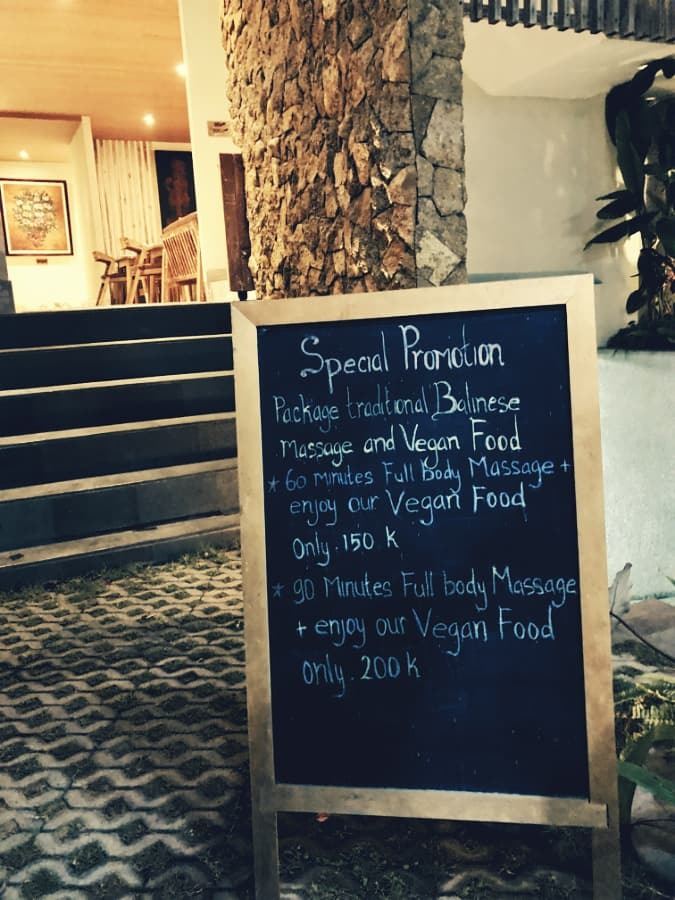 Special Promotion
Package traditional Balinese
Massage and Vegan Food
* 60 minutes Full Body Massage +
enjoy our Vegan Food
Only. 150 k
* 90 Minutes Full body Massage
+ enjoy our Vegan Food
only. 200 k